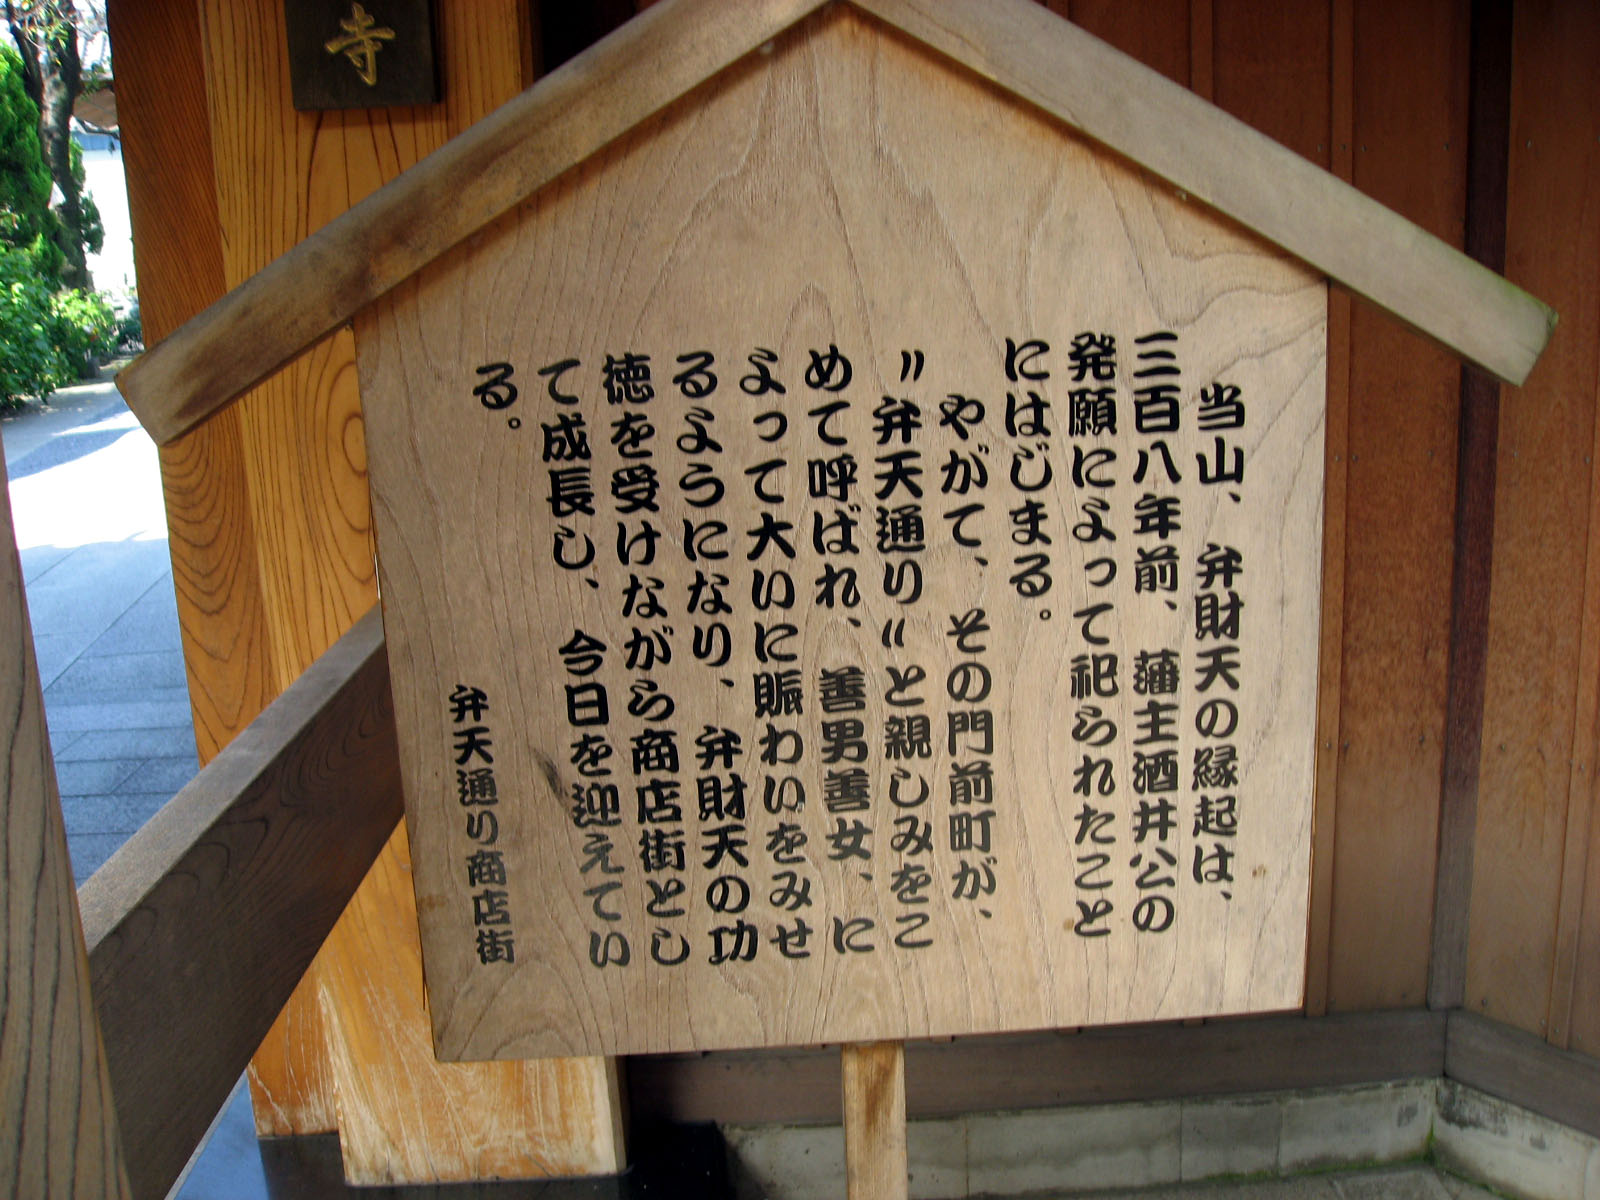 寺
当山、弁財天の縁起は、
三百八年前、藩主酒井公の
発願によって祀られたこと
にはじまる。
やがて、その門前町が、
〃弁天通り〃と親しみをこ
めて呼ばれ、善男善女、に
よって大いに賑わいをみせ
るようになり、弁財天の功
徳を受けながら商店街とし
て成長し、今日を迎えてい
る。
弁天通り商店街